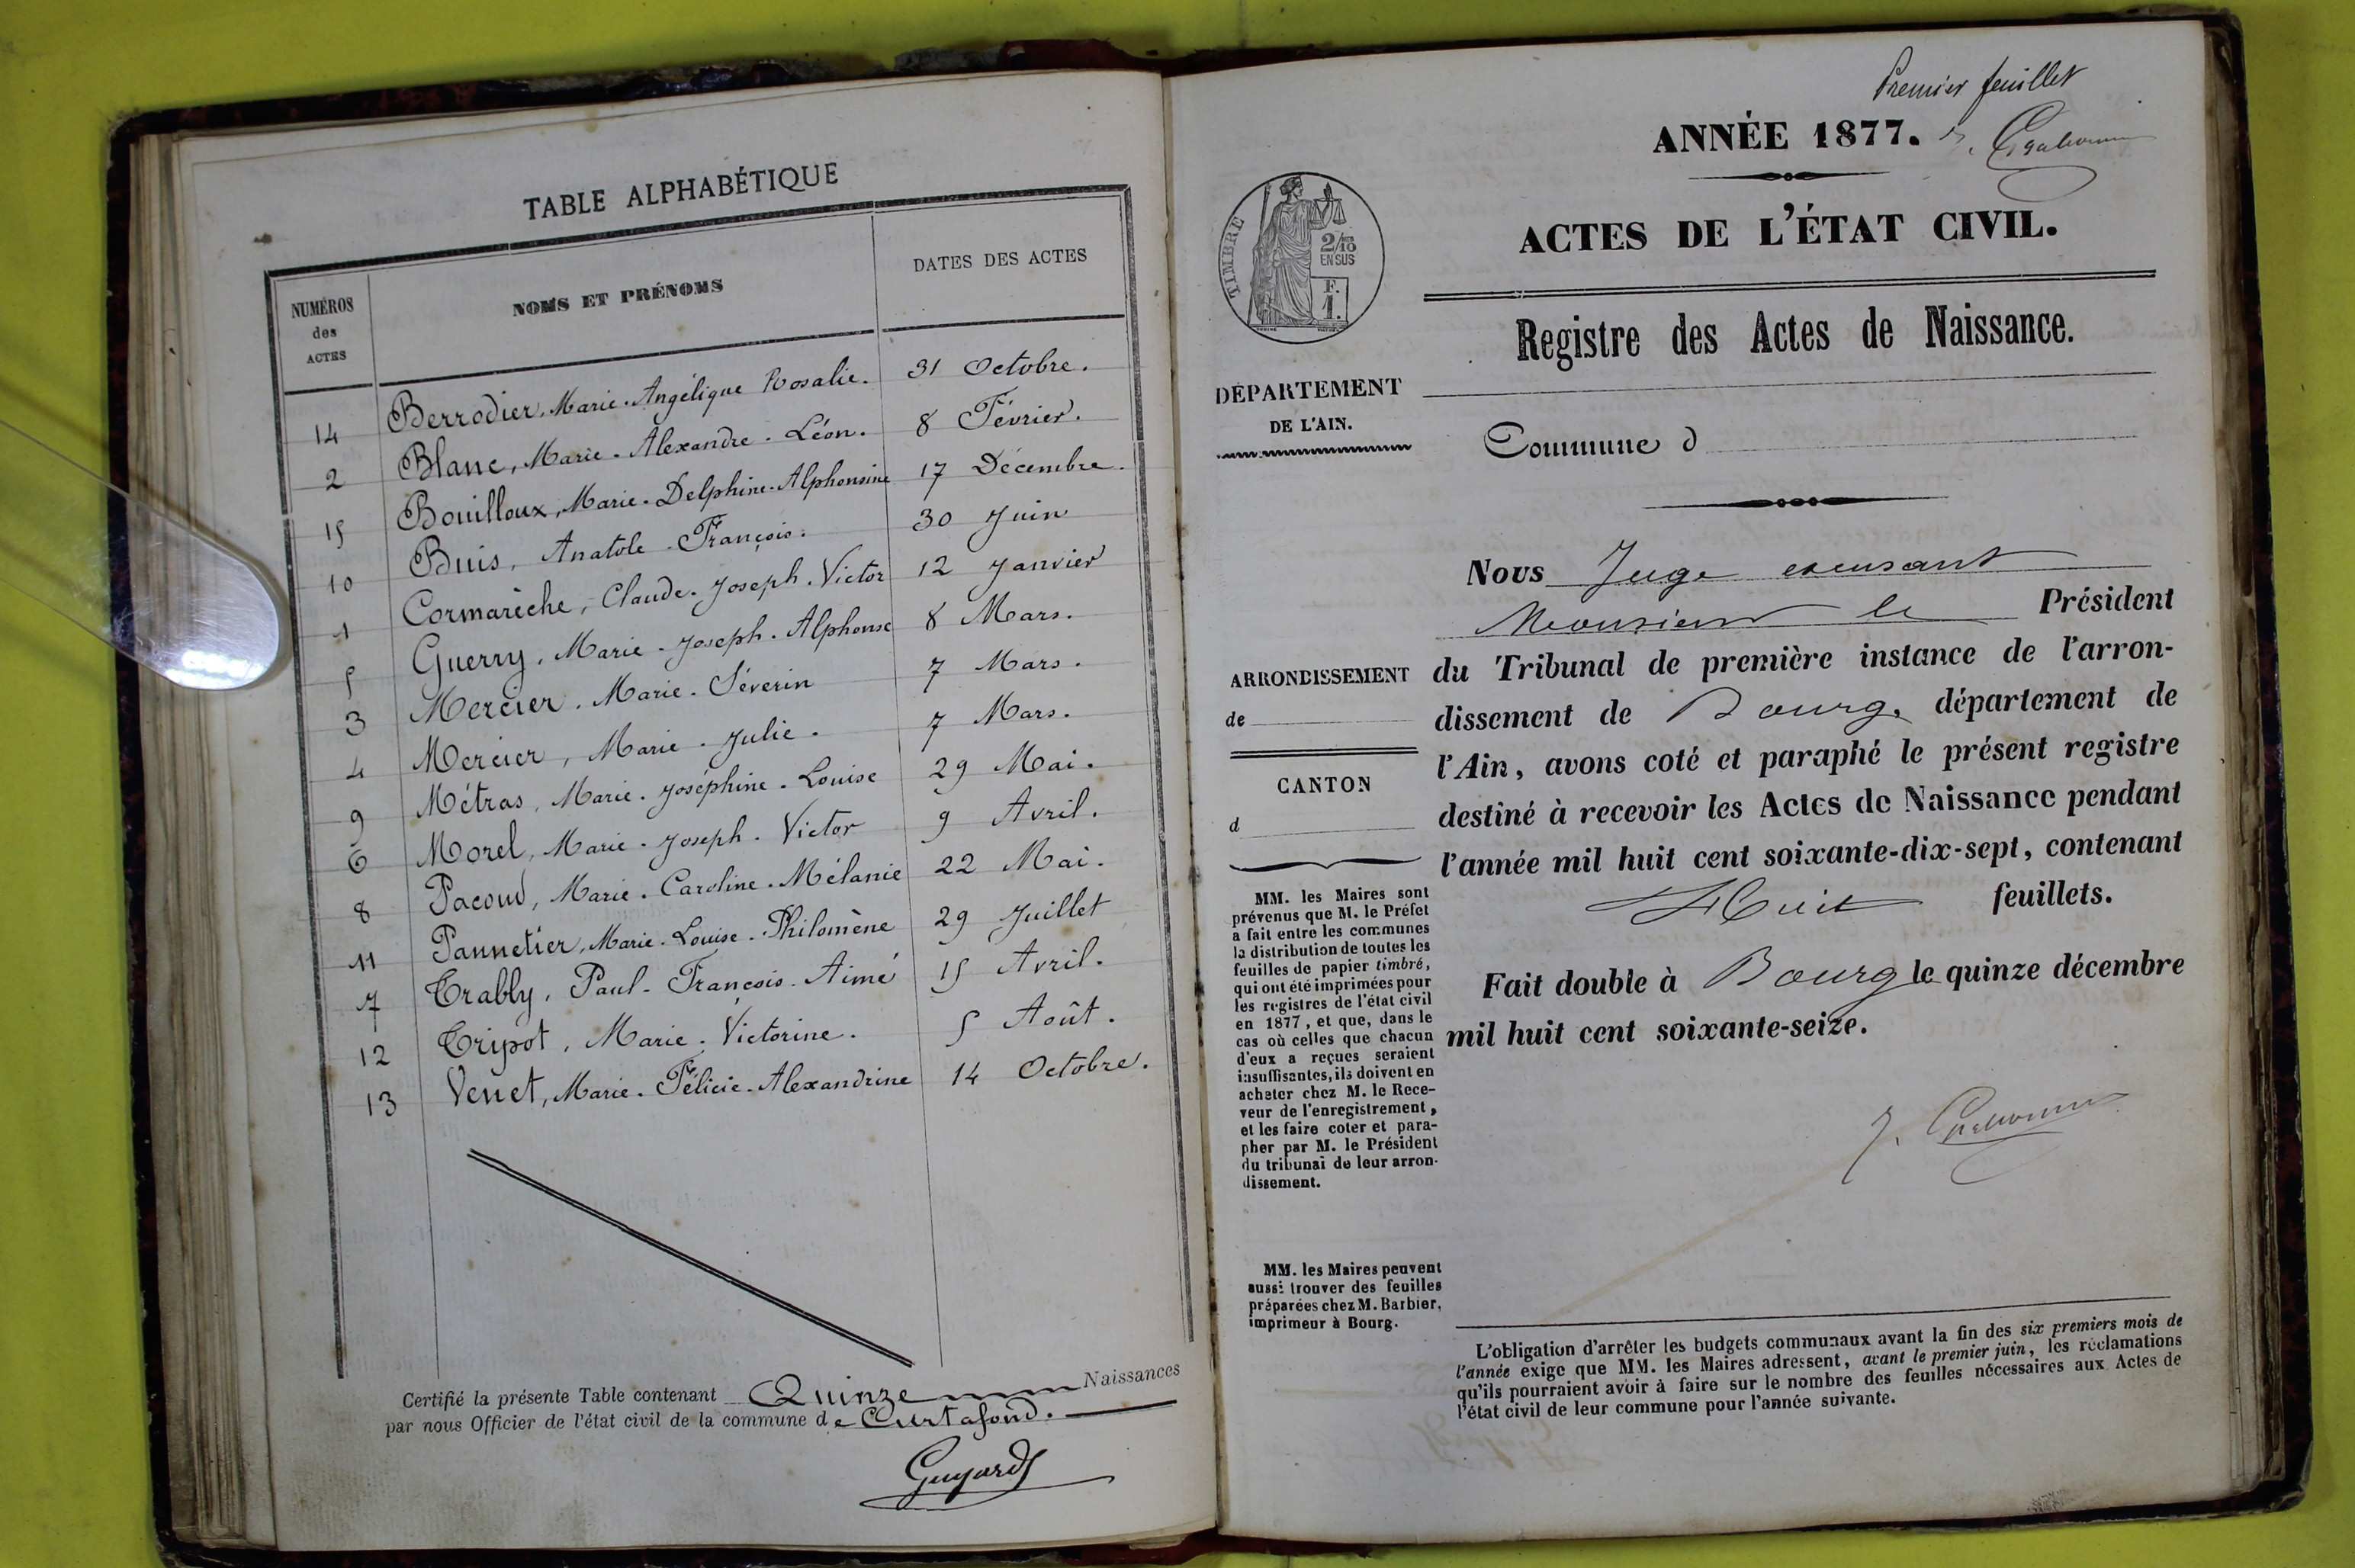 TABLE ALPHABÉTIQUE
NUMÉROS des ACTES
NOMS ET PRÉNOMS
DATES DES ACTES
14 Berrodier, Marie-Angélique Rosalie. 31 Octobre.
2 Blanc, Marie-Alexandre-Léon. 8 Février.
15 Bouilloux, Marie-Delphine-Alphonsine 17 Décembre.
10 Buis, Anatole-François. 30 Juin
1 Cormarèche, Claude-Joseph-Victor 12 Janvier
5 Guerry, Marie-Joseph-Alphonse 8 Mars.
3 Mercier, Marie-Séverin 7 Mars.
4 Mercier, Marie-Julie. 7 Mars.
9 Métras, Marie-Joséphine-Louise 29 Mai.
6 Morel, Marie-Joseph-Victor 9 Avril.
8 Pacoud, Marie-Caroline-Mélanie 22 Mai.
11 Pannetier, Marie-Louise-Philomène 29 Juillet
7 Trably, Paul-François-Aimé 15 Avril.
12 Tripot, Marie-Victorine. 5 Août.
13 Venet, Marie-Félicie-Alexandrine 14 Octobre.
Certifié la présente Table contenant Quinze Naissances
par nous Officier de l'état civil de la commune de Curtafond.
Guyard
Premier feuillet
ANNÉE 1877.
ACTES DE L'ÉTAT CIVIL.
TIMBRE
2/10
EN SUS
F.
1.
Registre des Actes de Naissance.
DÉPARTEMENT
DE L'AIN.
Commune d
Nous Juge excusant
Monsieur le Président
du Tribunal de première instance de l'arron-
dissement de Bourg, département de
l'Ain, avons coté et paraphé le présent registre
destiné à recevoir les Actes de Naissance pendant
l'année mil huit cent soixante-dix-sept, contenant
Huit feuillets.
Fait double à Bourg le quinze décembre
mil huit cent soixante-seize.
ARRONDISSEMENT
de
CANTON
d
MM. les Maires sont
prévenus que M. le Préfet
a fait entre les communes
la distribution de toutes les
feuilles de papier timbré,
qui ont été imprimées pour
les registres de l'état civil
en 1877, et que, dans le
cas où celles que chacun
d'eux a reçues seraient
insuffisantes, ils doivent en
acheter chez M. le Rece-
veur de l'enregistrement,
et les faire coter et para-
pher par M. le Président
du tribunal de leur arron-
dissement.
MM. les Maires peuvent
aussi trouver des feuilles
préparées chez M. Barbier,
imprimeur à Bourg.
L'obligation d'arrêter les budgets communaux avant la fin des six premiers mois de
l'année exige que MM. les Maires adressent, avant le premier juin, les réclamations
qu'ils pourraient avoir à faire sur le nombre des feuilles nécessaires aux Actes de
l'état civil de leur commune pour l'année suivante.